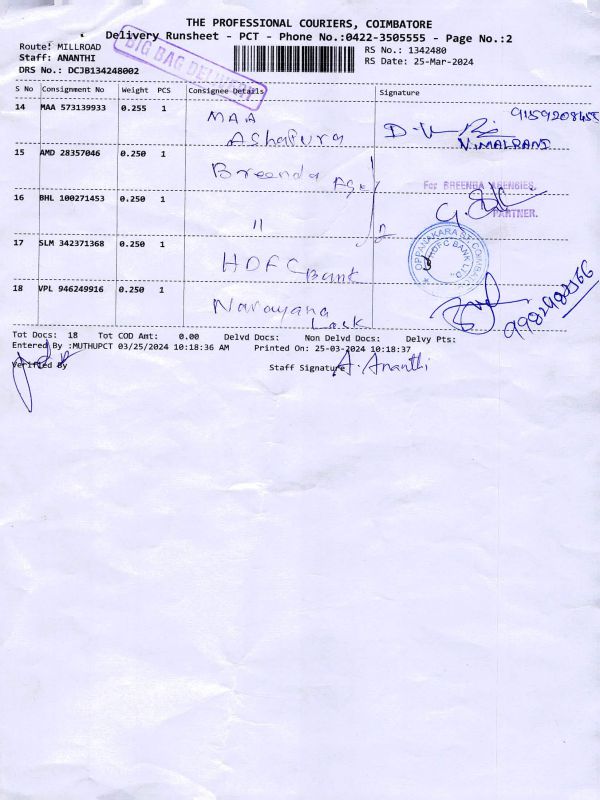 THE PROFESSIONAL COURIERS, COIMBATORE
Delivery Runsheet - PCT - Phone No.:0422-3505555 - Page No.:2
Route: MILLROAD
BIG BAG DELIVERY
RS No.: 1342480
Staff: ANANTHI
RS Date: 25-Mar-2024
DRS No.: DCJB134248002
S No Consignment No Weight PCS Consignee Details Signature
14 MAA 573139933 0.255 1 MAA Ashapura
VIMALRANI
15 AMD 28357046 0.250 1 Breenda Age
For BREENDA AGENCIES
PARTNER.
16 BHL 100271453 0.250 1 "
17 SLM 342371368 0.250 1 HDFC Bank
OPPANAKARA ST. HDFC BANK LTD.
18 VPL 946249916 0.250 1 Narayana Lock
Tot Docs: 18 Tot COD Amt: 0.00 Delvd Docs: Non Delvd Docs: Delvy Pts:
Entered By :MUTHUPCT 03/25/2024 10:18:36 AM Printed On: 25-03-2024 10:18:37
Verified By
Staff Signature A. Ananthi